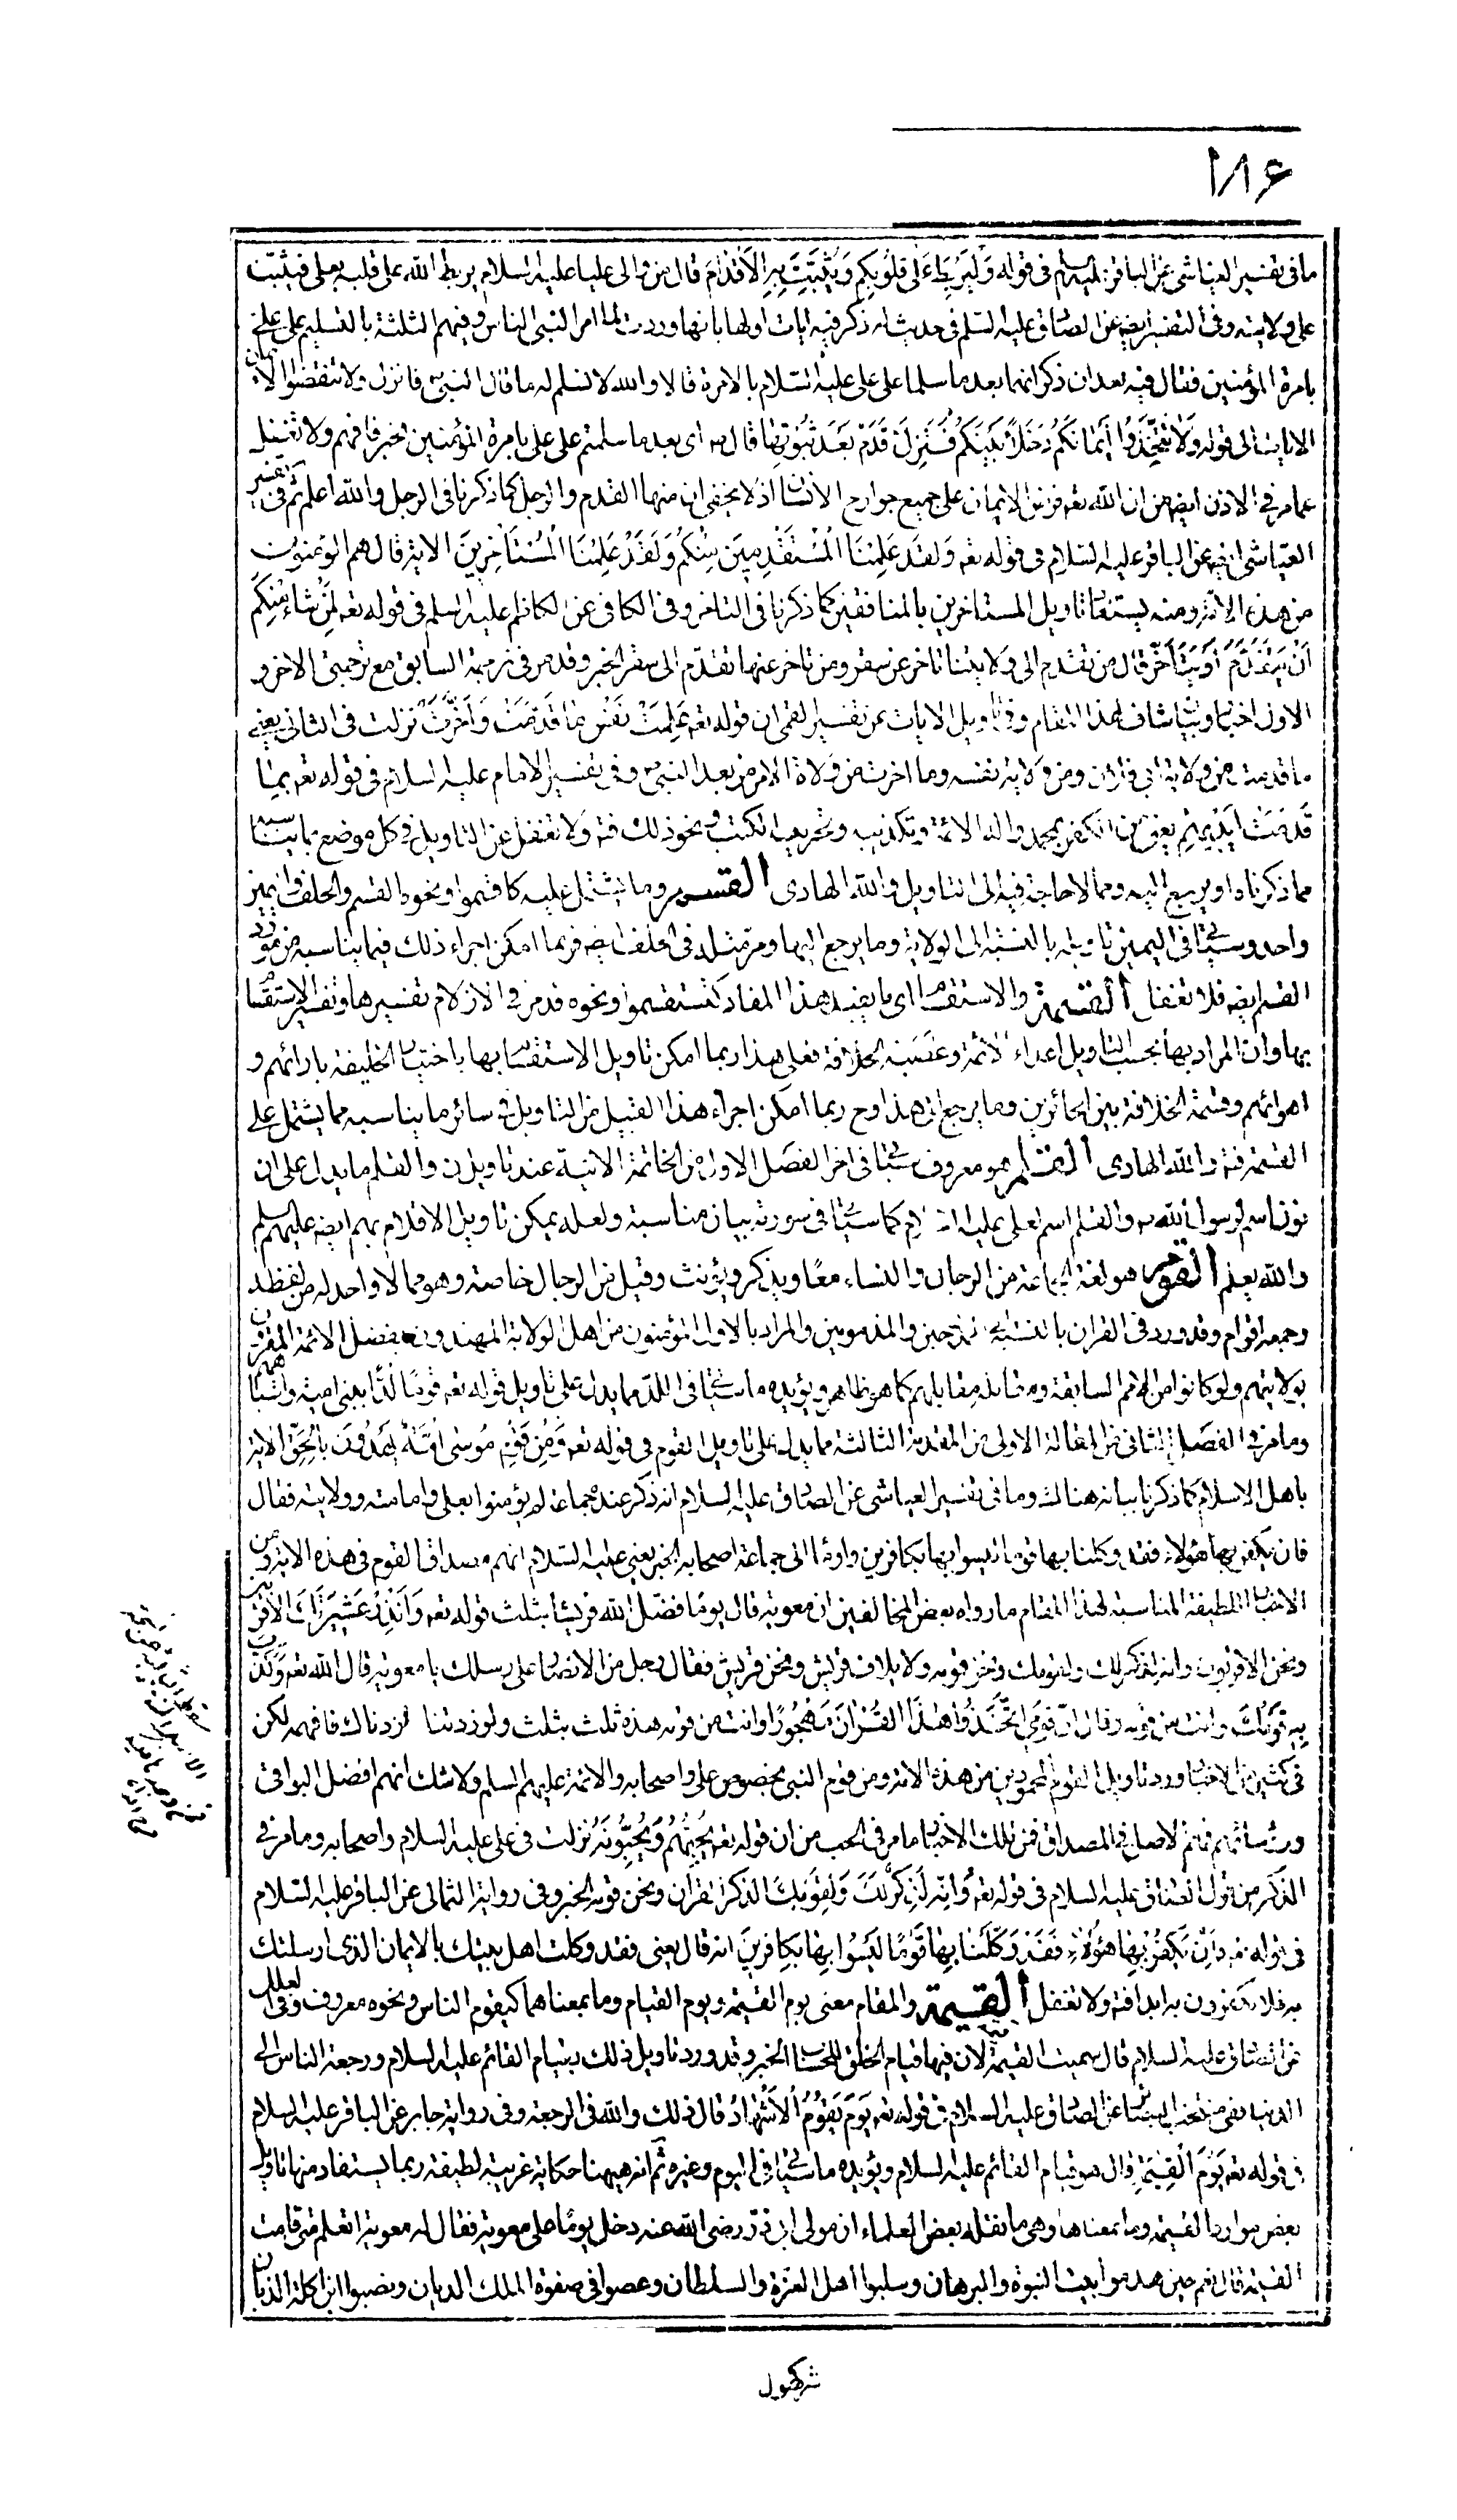 ١٨۶
ما فى تفسير العياشى عن الباقر عليه السلام فى قوله وَلِيَرْبِطَ عَلى قُلُوبِكُمْ وَيُثَبِّتَ بِهِ الأَقْدامَ قال من والى عليا عليه السلام يربط الله على قلبه بعلى فيثبت
على ولايته وفى التفسير ايضا عن الصادق عليه السلم فى حديث له ذكر فيه ايات اولها بانها وردت لما امر النبى الناس وفيهم الثلثة بالتسليم على على
بامرة المؤمنين فقال فيه بعد ان ذكر انهما بعد ما سلما على على عليه السلام بالامرة قالا والله لا نسلم له ما قال النبى ص فانزل ولا تنقضوا الايمان
الايات الى قوله وَلا تَتَّخِذُوا أَيْمانَكُمْ دَخَلاً بَيْنَكُمْ فَتَزِلَّ قَدَمٌ بَعْدَ ثُبُوتِها قال ص اى بعد ما سلمتم على على بامرة المؤمنين الخبر فافهم ولا تغفل
عما مر فى الاذن ايضا من ان الله تعه فرض الايمان على جميع جوارح الانسان اذ لا يخفى ان منها القدم والرجل كما ذكرنا فى الرجل والله اعلم ثم فى تفسير
العياشى ايضا عن الباقر عليه السلام فى قوله تعه وَلَقَدْ عَلِمْنَا الْمُسْتَقْدِمِينَ مِنْكُمْ وَلَقَدْ عَلِمْنَا الْمُسْتَأْخِرِينَ الاية قال هم المؤمنون
من هذه الامة ومنه يستفاد تاويل المستاخرين بالمنافقين كما ذكرنا فى التاخر وفى الكافى عن الكاظم عليه السلم فى قوله تعه لِمَنْ شاءَ مِنْكُمْ
أَنْ يَتَقَدَّمَ أَوْ يَتَأَخَّرَ قال من تقدم الى ولايتنا تاخر عن سقر ومن تاخر عنها تقدم الى سقر الخبر وقد مر فى ترجمة السابق مع ترجمتى الاخر و
الاول اخبار وبيان شاف لهذا المقام وفى تاويل الايات عن تفسير القمى ان قوله تعه عَلِمَتْ نَفْسٌ ما قَدَّمَتْ وَأَخَّرَتْ نزلت فى الثانى يعنى
ما قدمت من ولاية ابى فلان ومن ولاية نفسه وما اخرت من ولاة الامر من بعد النبى ص وفى تفسير الامام عليه السلام فى قوله تعه بِما
قَدَّمَتْ أَيْدِيهِمْ يعنى من الكفر بمحمد واله الائمة وتكذيبه وتحريف الكتب ونحو ذلك فته ولا تغفل عن التاويل فى كل موضع بما يناسبه
مما ذكرناه او يرجع اليه ومما لا حاجة فيه الى التاويل والله الهادى القسم وما يشتمل عليه كاقسموا ونحوه القسم والحلف واليمين
واحد وسياتى فى اليمين تاويله بالنسبة الى الولاية وما يرجع اليها ومر مثله فى الحلف ايضه فربما امكن اجراء ذلك فيما يناسبه من موارد
القسم ايضه فلا تغفل القسمة والاستقسام اى ما يفيد هذا المفاد كتستقسموا ونحوه قد مر فى الازلام تفسيرها وتفسير الاستقسام
بها وان المراد بها بحسب التاويل اعداء الائمة وغصبة الخلافة فعلى هذا ربما امكن تاويل الاستقسام بها باختيار الخليفة بارائهم و
اهوائهم وقسمة الخلافة بين الجائرين وما يرجع الى هذا وح ربما امكن اجراء هذا القبيل من التاويل فى سائر ما يناسبه مما يشتمل على
القسمة فته والله الهادى القلم هو معروف سياتى فى اخر الفصل الاول من الخاتمة الاتية عند تاويل ن والقلم ما يدل على ان
نون اسم لرسول الله ص والقلم اسم لعلى عليه السلام كما سياتى فى سورته بيان مناسبة ولعله يمكن تاويل الاقلام بهم ايضه عليهم السلم
والله يعلم القوم هو لغة الجماعة من الرجال والنساء معًا ويذكر ويؤنث وقيل من الرجال خاصة وهو مما لا واحد له من لفظه
وجمعه اقوام وقد ورد فى القران بالنسبة الى الممدوحين والمذمومين والمراد بالاول المؤمنون من اهل الولاية المهتدون بفضل الائمة المقرون
بولايتهم ولو كانوا من الامم السابقة ومقابله مقابلهم كما هو ظاهر ويؤيده ما سياتى فى اللد مما يدل على تاويل قوله تعه قومًا لُدًّا ببنى امية واشباههم
وما مر فى الفصل الثانى من المقالة الاولى من المقدمة الثالثة مما يدل على تاويل القوم فى قوله تعه وَمِنْ قَوْمِ مُوسى أُمَّةٌ يَهْدُونَ بِالْحَقِّ الاية
باهل الاسلام كما ذكرنا بيانه هناك وما فى تفسير العياشى عن الصادق عليه السلام انه ذكر عنده جماعة لم يؤمنوا بعلى وامامته وولايته فقال
فان يكفر بها هؤلاء فقد وكلنا بها قوما ليسوا بها بكافرين واومأ الى جماعة اصحابه الخبر يعنى عليه السلام انهم مصداق القوم فى هذه الاية ومن
الاخبار اللطيفة المناسبة لهذا المقام ما رواه بعض المخالفين ان معوية قال يومًا فضّل الله قريشا بثلث قوله تعه وَأَنْذِرْ عَشِيرَتَكَ الأَقْرَبِينَ
ونحن الاقربون وانه لذكر لك ولقومك ونحن قومه ولايلاف قريش ونحن قريش فقال رجل من الانصار على رسلك يا معوية قال الله تعه وَكَذَّبَ
بِهِ قَوْمُكَ وانت من قومه وقال إِنَّ قَوْمِي اتَّخَذُوا هذَا الْقُرْآنَ مَهْجُورًا وانت من قومه هذه ثلث بثلث ولو زدتنا لزدناك فافهم لكن
فى كثير من الاخبار ورد تاويل القوم المحمودين من هذه الامة ومن قوم النبى بخصوص على واصحابه والائمة عليهم السلم ولا شك انهم افضل البواقى
ورؤسائهم فهم الاصل فى المصداق فمن تلك الاخبار ما مر فى الحب من ان قوله تعه يُحِبُّهُمْ وَيُحِبُّونَهُ نزلت فى على عليه السلام واصحابه وما مر فى
الذكر من قول الصادق عليه السلام فى قوله تعه وَإِنَّهُ لَذِكْرٌ لَكَ وَلِقَوْمِكَ الذكر القران ونحن قومه الخبر وفى رواية الثمالى عن الباقر عليه السلام
فى قوله تعه فَإِنْ يَكْفُرْ بِها هؤُلاءِ فَقَدْ وَكَّلْنا بِها قَوْمًا لَيْسُوا بِها بِكافِرِينَ انه قال يعنى فقد وكلت اهل بيتك بالايمان الذى ارسلتك
به فلا يكفرون به ابدا فته ولا تغفل القيمة والمقام معنى يوم القيمة ويوم القيام وما بمعناهما كيقوم الناس ونحوه معروف وفى العلل
عن الصادق عليه السلام قال سميت القيمة قيمة لان فيها قيام الخلق للحساب الخبر وقد ورد تاويل ذلك بقيام القائم عليه السلام ورجعة الناس الى
الدنيا ففى منتخب البصائر عن الصادق عليه السلام فى قوله تعه يَوْمَ يَقُومُ الأَشْهادُ قال ذلك والله فى الرجعة وفى رواية جابر عن الباقر عليه السلام
فى قوله تعه يَوْمَ الْقِيمَةِ قال هو قيام القائم عليه السلام ويؤيده ما سياتى فى اليوم وغيره ثم انه هيهنا حكاية غريبة لطيفة ربما يستفاد منها تاويل
بعض موارد القيمة وما بمعناها وهى ما نقله بعض العلماء ان مولى ابى ذر رضى الله عنه دخل يومًا على معوية فقال له معوية اتعلم متى قامت
القيمة قال نعم حين هدموا بيت النبوة والبرهان وسلبوا اهل العزة والسلطان وعصوا فى صفوة الملك الديان ونصبوا ابن اكلة الذبان